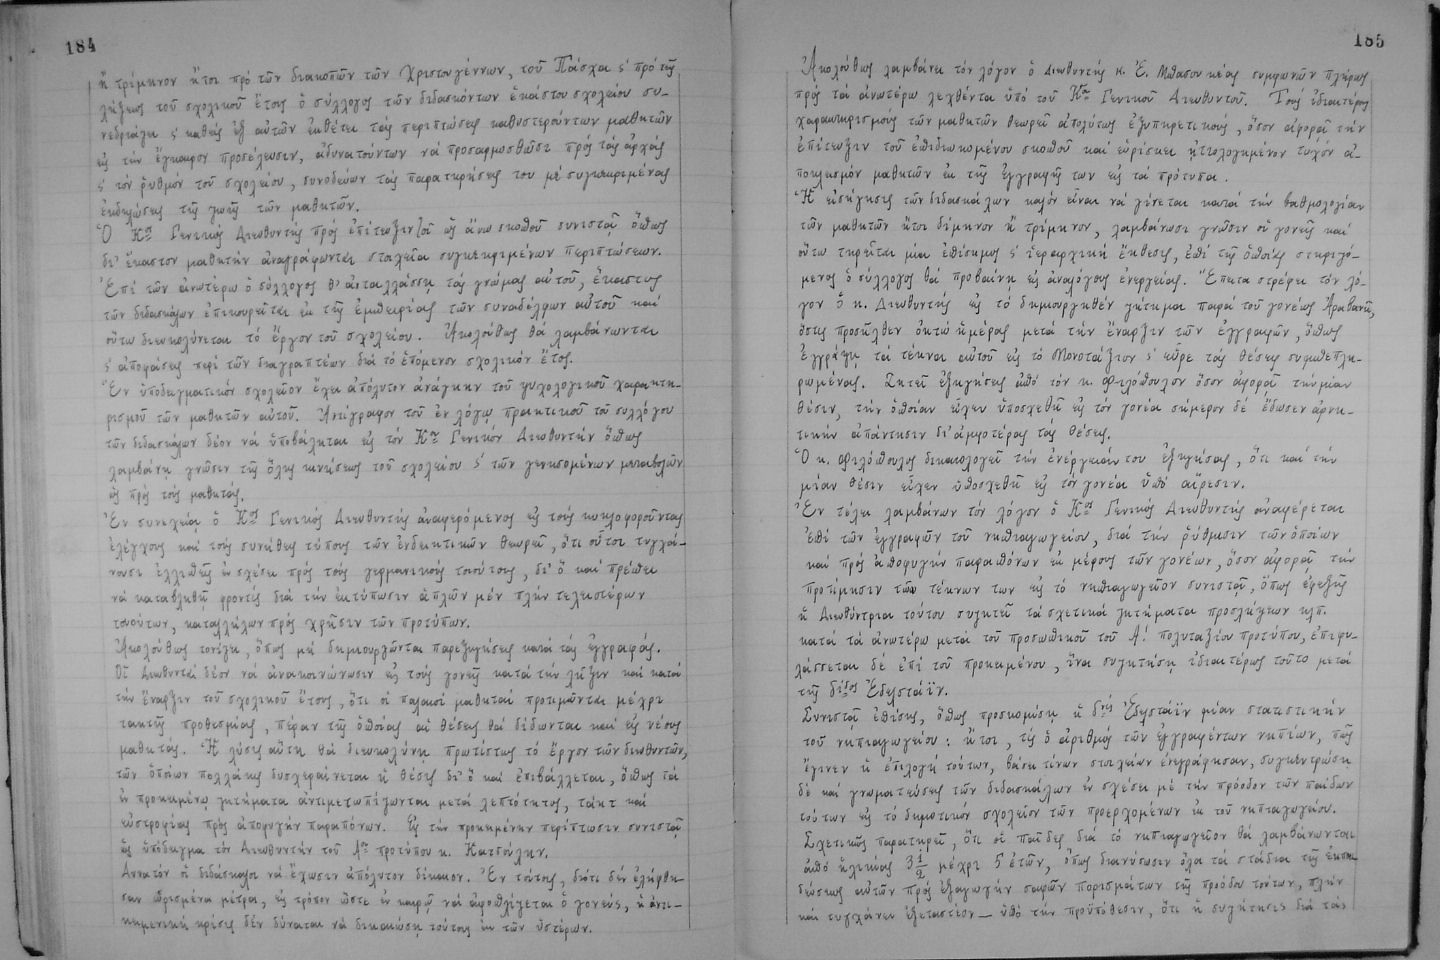 184
ἢ τρίμηνον ἤτοι πρό τῶν διακοπῶν τῶν Χριστουγέννων, τοῦ Πάσχα ϛ' πρό τῆς
λήξεως τοῦ σχολικοῦ ἔτους ὁ σύλλογος τῶν διδασκόντων ἑκάστου σχολείου συ-
νεδριάζει ϛ' καθείς ἐξ αὐτῶν ἐκθέτει τάς περιπτώσεις καθυστερούντων μαθητῶν
εἰς τήν ἔγκαιρον προσέλευσιν, ἀδυνατούντων νά προσαρμοσθῶσι πρός τάς ἀρχάς
ϛ' τόν ῥυθμόν τοῦ σχολείου, συνοδεύων τάς παρατηρήσεις του μέ συγκεκριμένας
ἐκδηλώσεις τῆς ζωῆς τῶν μαθητῶν.
Ὁ Κος Γενικός Διευθυντής πρός ἐπίτευξιν τοῦ ὡς ἄνω σκοποῦ συνιστᾷ ὅπως
δι' ἕκαστον μαθητήν ἀναγράφωνται στοιχεῖα συγκεκριμένων περιπτώσεων.
Ἐπί τῶν ἀνωτέρω ὁ σύλλογος θ' ἀνταλλάσσῃ τάς γνώμας αὐτοῦ, ἕκαστος
τῶν διδασκάλων ἐπικουρεῖται ἐκ τῆς ἐμπειρίας τῶν συναδέλφων αὐτοῦ καί
οὕτω διευκολύνεται τό ἔργον τοῦ σχολείου. Ἀκολούθως θά λαμβάνωνται
ϛ' ἀποφάσεις περί τῶν διαγραπτέων διά τό ἑπόμενον σχολικόν ἔτος.
Ἕν ὑποδειγματικόν σχολεῖον ἔχει ἀπόλυτον ἀνάγκην τοῦ ψυχολογικοῦ χαρακτη-
ρισμοῦ τῶν μαθητῶν αὐτοῦ. Ἀντίγραφον τοῦ ἐν λόγῳ πρακτικοῦ τοῦ συλλόγου
τῶν διδασκάλων δέον νά ὑποβάληται εἰς τόν Κον Γενικόν Διευθυντήν ὅπως
λαμβάνῃ γνῶσιν τῆς ὅλης κινήσεως τοῦ σχολείου ϛ' τῶν γενησομένων μεταβολῶν
ὡς πρός τούς μαθητάς.
Ἐν συνεχείᾳ ὁ Κος Γενικός Διευθυντής ἀναφερόμενος εἰς τούς κυκλοφοροῦντας
ἐλέγχους καί τούς συνήθεις τύπους τῶν ἐνδεικτικῶν θεωρεῖ, ὅτι οὗτοι τυγχά-
νουσι ἐλλιπεῖς ἐν σχέσει πρός τούς γερμανικούς τοιούτους, δι' ὅ καί πρέπει
νά καταβληθῇ φροντίς διά τήν ἐκτύπωσιν ἁπλῶν μέν πλήν τελειοτέρων
τοιούτων, καταλλήλων πρός χρῆσιν τῶν προτύπων.
Ἀκολούθως τονίζει, ὅπως μή δημιουργῶνται παρεξηγήσεις κατά τάς ἐγγραφάς.
Οἱ Διευθυνταί δέον νά ἀνακοινώνωσιν εἰς τούς γονεῖς κατά τήν λῆξιν καί κατά
τήν ἔναρξιν τοῦ σχολικοῦ ἔτους, ὅτι οἱ παλαιοί μαθηταί προτιμῶνται μέχρι
τακτῆς προθεσμίας, πέραν τῆς ὁποίας αἱ θέσεις θά δίδωνται καί εἰς νέους
μαθητάς. Ἡ λύσις αὕτη θά διευκολύνῃ πρωτίστως τό ἔργον τῶν διευθυντῶν,
τῶν ὁποίων πολλάκις δυσχεραίνεται ἡ θέσις δι' ὅ καί ἐπιβάλλεται, ὅπως τά
ἐν προκειμένῳ ζητήματα ἀντιμετωπίζωνται μετά λεπτότητος, τάκτ καί
εὐστροφίας πρός ἀποφυγήν παραπόνων. Εἰς τήν προκειμένην περίπτωσιν συνιστᾷ
ὡς ὑπόδειγμα τόν Διευθυντήν τοῦ Αου προτύπου κ. Κατσούλην.
Δυνατόν οἱ διδάσκαλοι νά ἔχωσιν ἀπόλυτον δίκαιον. Ἐν τούτοις, διότι δέν ἐλήφθη-
σαν ὡρισμένα μέτρα, εἰς τρόπον ὥστε ἐν καιρῷ νά ἀφοπλίζεται ὁ γονεύς, ἡ ἀντι-
κειμενική κρίσις δέν δύναται νά δικαιώσῃ τούτους ἐκ τῶν ὑστέρων.
185
Ἀκολούθως λαμβάνει τόν λόγον ὁ Διευθυντής κ. Ἐ. Μπασουκέας συμφωνῶν πλήρως
πρός τά ἀνωτέρω λεχθέντα ὑπό τοῦ Κου Γενικοῦ Διευθυντοῦ. Τούς ἰδιαιτέρους
χαρακτηρισμούς τῶν μαθητῶν θεωρεῖ ἀπολύτως ἐξυπηρετικούς, ὅσον ἀφορᾷ τήν
ἐπίτευξιν τοῦ ἐπιδιωκομένου σκοποῦ καί εὑρίσκει ᾐτιολογημένον τυχόν ἀ-
ποκλεισμόν μαθητῶν ἐκ τῆς ἐγγραφῆς των εἰς τά πρότυπα.
Ἡ εἰσήγησις τῶν διδασκάλων καλόν εἶναι νά γίνεται κατά τήν βαθμολογίαν
τῶν μαθητῶν ἤτοι δίμηνον ἢ τρίμηνον, λαμβάνωσι γνῶσιν οἱ γονεῖς καί
οὕτω τηρεῖται μία ἐπίσημος ϛ' ἱεραρχική ἔκθεσις, ἐπί τῆς ὁποίας στηριζό-
μενος ὁ σύλλογος θά προβαίνῃ εἰς ἀναλόγους ἐνεργείας. Ἔπειτα στρέφει τόν λό-
γον ὁ κ. Διευθυντής εἰς τό δημιουργηθέν ζήτημα παρά τοῦ γονέως Ἀραβανῆ,
ὅστις προσῆλθεν ὀκτώ ἡμέρας μετά τήν ἔναρξιν τῶν ἐγγραφῶν, ὅπως
ἐγγράψῃ τά τέκνα αὐτοῦ εἰς τό Μονοτάξιον ϛ' εὗρε τάς θέσεις συμπεπλη-
ρωμένας. Ζητεῖ ἐξηγήσεις ἀπό τόν κ. Φιλόπουλον ὅσον ἀφορᾷ τήν μίαν
θέσιν, τήν ὁποίαν εἶχεν ὑποσχεθῆ εἰς τόν γονέα σήμερον δέ ἔδωσεν ἀρνη-
τικήν ἀπάντησιν δι' ἀμφοτέρας τάς θέσεις.
Ὁ κ. Φιλόπουλος δικαιολογεῖ τήν ἐνέργειάν του ἐξηγήσας, ὅτι καί τήν
μίαν θέσιν εἶχεν ὑποσχεθῆ εἰς τόν γονέα ὑπό αἵρεσιν.
Ἐν τέλει λαμβάνων τόν λόγον ὁ Κος Γενικός Διευθυντής ἀναφέρεται
ἐπί τῶν ἐγγραφῶν τοῦ νηπιαγωγείου, διά τήν ῥύθμισιν τῶν ὁποίων
καί πρός ἀποφυγήν παραπόνων ἐκ μέρους τῶν γονέων, ὅσον ἀφορᾷ τήν
προτίμησιν τῶν τέκνων των εἰς τό νηπιαγωγεῖον συνιστᾷ, ὅπως ἐφεξῆς
ἡ Διευθύντρια τούτου συζητεῖ τά σχετικά ζητήματα προσλήψεων κλπ.
κατά τά ἀνωτέρω μετά τοῦ προσωπικοῦ τοῦ Α! πολυταξίου προτύπου, ἐπιφυ-
λάσσεται δέ ἐπί τοῦ προκειμένου, ἵνα συζητήσῃ ἰδιαιτέρως τοῦτο μετά
τῆς δίδος Ἐδελστάϊν.
Συνιστᾷ ἐπίσης, ὅπως προσκομίσῃ ἡ δίς Ἐδελστάϊν μίαν στατιστικήν
τοῦ νηπιαγωγείου: ἤτοι, τίς ὁ ἀριθμός τῶν ἐγγραφέντων νηπίων, πῶς
ἔγινεν ἡ ἐπιλογή τούτων, βάσει τίνων στοιχείων ἐνεγράφησαν, συγκεντρώσῃ
δέ καί γνωματεύσεις τῶν διδασκάλων ἐν σχέσει μέ τήν πρόοδον τῶν παίδων
τούτων εἰς τό δημοτικόν σχολεῖον τῶν προερχομένων ἐκ τοῦ νηπιαγωγείου.
Σχετικῶς παρατηρεῖ, ὅτι οἱ παῖδες διά τό νηπιαγωγεῖον θά λαμβάνωνται
ἀπό ἡλικίας 3½ μέχρι 5 ἐτῶν, ὅπως διανύσωσιν ὅλα τά στάδια τῆς ἐκπαι-
δεύσεως αὐτῶν πρός ἐξαγωγήν σαφῶν πορισμάτων τῆς προόδου τούτων, πλήν
καί τυγχάνει ἐξεταστέον — ὑπό τήν προϋπόθεσιν, ὅτι ἡ συζήτησις διά τάς